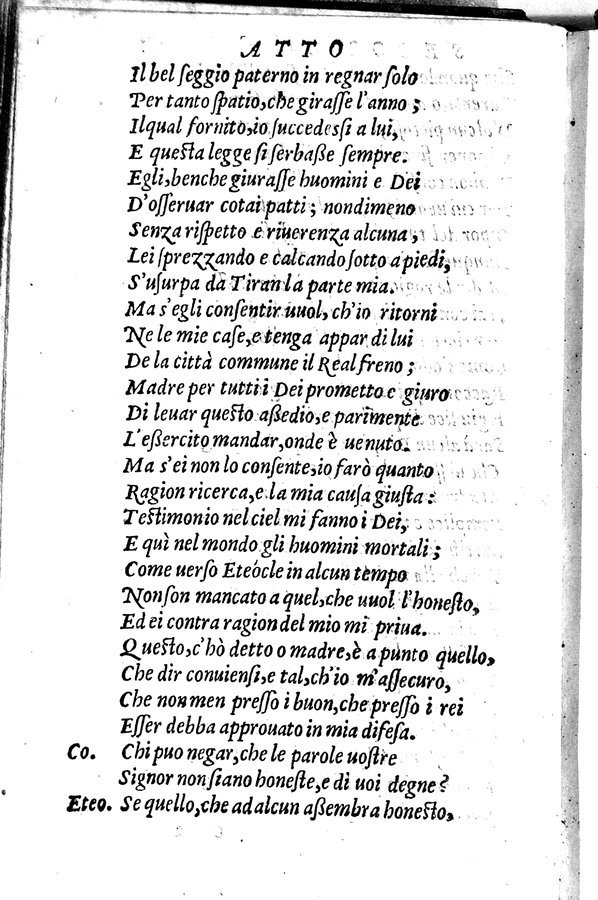 ATTO
Il bel ſeggio paterno in regnar ſolo
Per tanto ſpatio, che giraſſe l'anno;
Ilqual fornito, io ſuccedeſſi a lui,
E queſta legge ſi ſerbaße ſempre.
Egli, benche giuraſſe huomini e Dei
D'oſſeruar cotai patti; nondimeno
Senza riſpetto e riuerenza alcuna,
Lei ſprezzando e calcando ſotto a piedi,
S'uſurpa da Tiran la parte mia.
Ma s'egli conſentir uuol, ch'io ritorni
Ne le mie caſe, e tenga appar di lui
De la città commune il Real freno;
Madre per tutti i Dei prometto e giuro
Di leuar queſto aßedio, e parimente
L'eßercito mandar, onde è uenuto.
Ma s'ei non lo conſente, io farò quanto
Ragion ricerca, e la mia cauſa giuſta:
Teſtimonio nel ciel mi fanno i Dei,
E quì nel mondo gli huomini mortali;
Come uerſo Eteócle in alcun tempo
Non ſon mancato a quel, che uuol l'honeſto,
Ed ei contra ragion del mio mi priua.
Queſto, c'hò detto o madre, è a punto quello,
Che dir conuienſi, e tal, ch'io m'aſſecuro,
Che non men preſſo i buon, che preſſo i rei
Eſſer debba approuato in mia difeſa.
Co. Chi puo negar, che le parole uoſtre
Signor non ſiano honeſte, e di uoi degne?
Eteo. Se quello, che ad alcun aßembra honeſto,